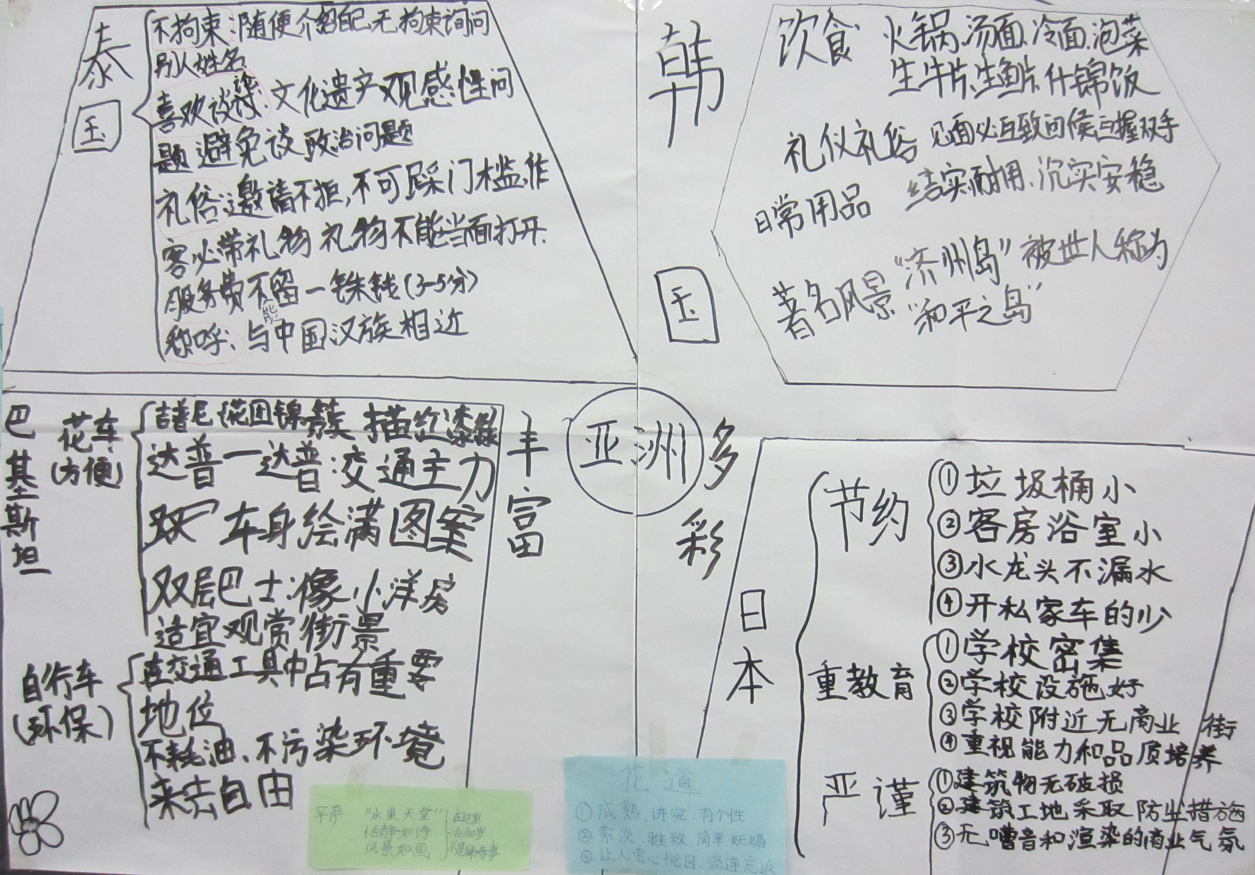 泰国
不拘束:随便介绍配无拘束询问
别人姓名
喜欢谈论:文化遗产观感性问
题避免谈政治问题
礼俗:邀请不拒,不可踩门槛作
客必带礼物 礼物不能当面打开.
服务费不能留一铢钱(3-5分)
称呼:与中国汉族相近
韩国
饮食 火锅.汤面.冷面.泡菜
生牛片.生鱼片.什锦饭
礼仪礼俗 见面必互致问候 握双手
日常用品 结实耐用.沉实安稳
著名风景 "济州岛"被世人称为
"和平之岛"
丰富
亚洲
多彩
巴基斯坦
花车
(方便)
吉普尼 花团锦簇 描红漆绿
达普一达普:交通主力
车身绘满图案
双层巴士:像小洋房
适宜观赏街景
自行车
(环保)
在交通工具中占有重要
地位
不耗油、不污染环境
来去自由
日本
节约
①垃圾桶小
②客房浴室小
③水龙头不漏水
④开私家车的少
重教育
①学校密集
②学校设施好
③学校附近无商业街
④重视能力和品质培养
严谨
①建筑物无破损
②建筑工地采取防尘措施
③无嘈音和渲染的商业气氛
"水果天堂"
恬静如诗
风景如画
花道
①成熟.讲究.有个性
②素淡.雅致.简单
③让人赏心悦目、流连忘返